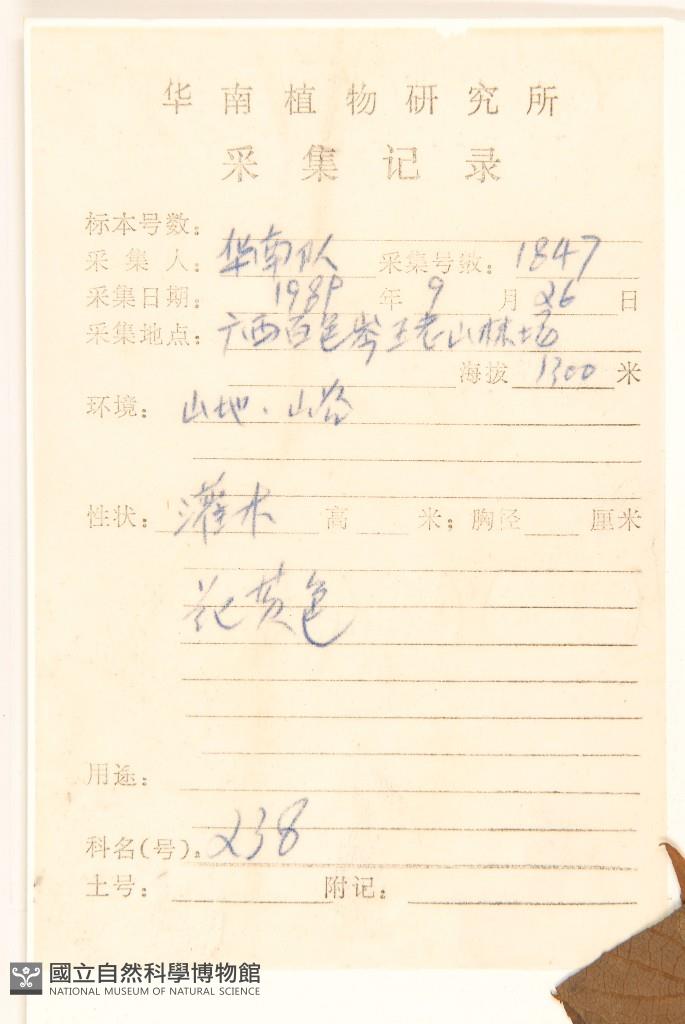 华南植物研究所
采集记录
标本号数:
采集人: 华南队 采集号数: 1847
采集日期: 1989 年 9 月 26 日
采集地点: 广西百色岑王老山林场
海拔 1300 米
环境: 山地·山谷
性状: 灌木 高 米; 胸径 厘米
花黄色
用途:
科名(号). 238
土号: 附记:
國立自然科學博物館
NATIONAL MUSEUM OF NATURAL SCIENCE